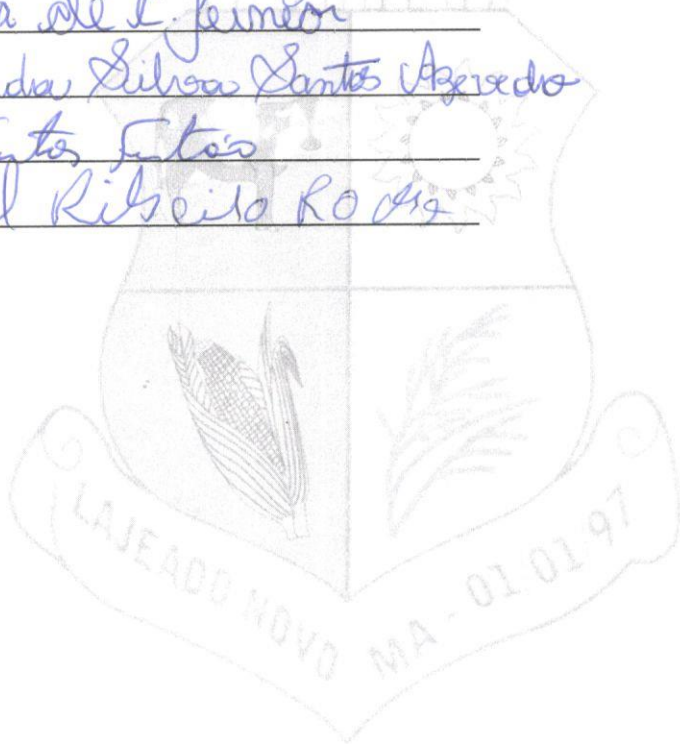 a de L. Junior
dra Silva Santos Azevedo
ntos Fintão
l Ribeiro Rocha
LAJEADO NOVO MA - 01 01 97